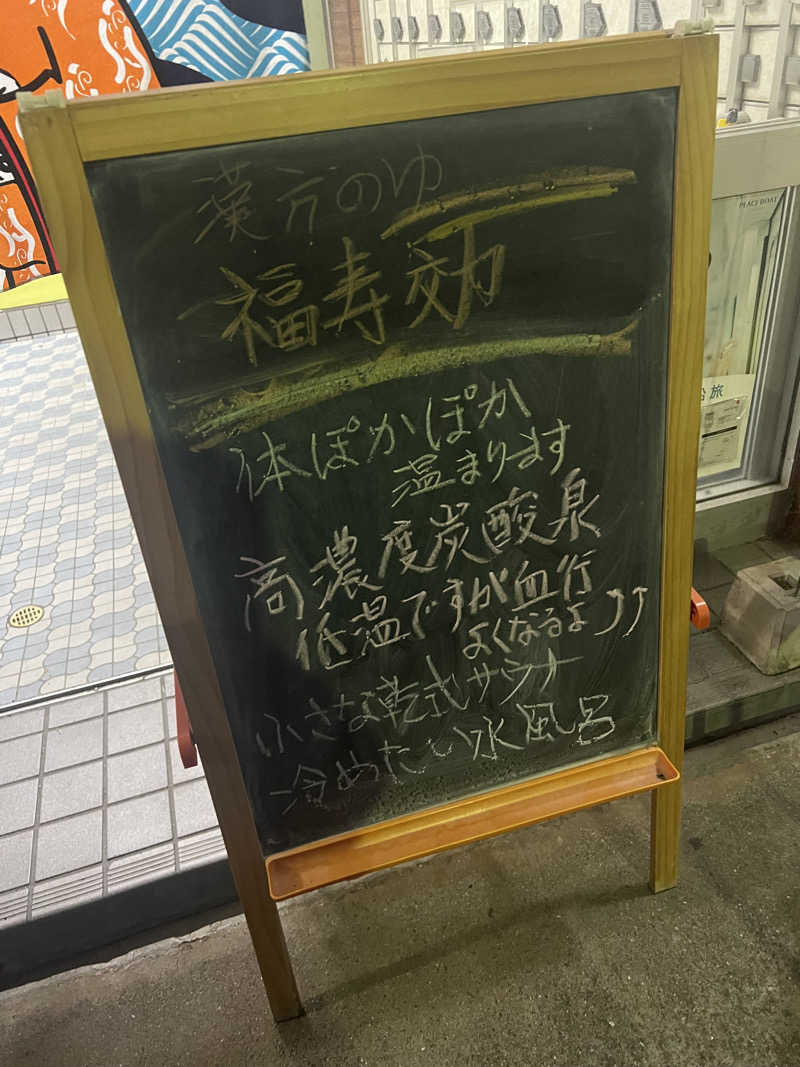 漢方のゆ
福寿効
体ぽかぽか
温まります
高濃度炭酸泉
低温ですが血行
よくなるよ♪♪
小さな乾式サウナ
冷めたい水風呂
PEACE BOAT
船旅